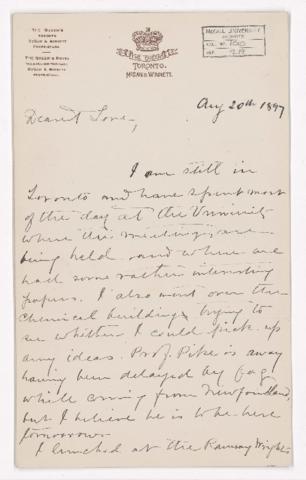 THE QUEEN'S
TORONTO
McGAW & WINNETT
PROPRIETORS
THE QUEEN'S ROYAL
NIAGARA-ON-THE-LAKE
McGAW & WINNETT
PROPRIETORS
THE QUEEN'S
TORONTO.
McGAW & WINNETT.
McGILL UNIVERSITY
ARCHIVES
ACC. NO.
REF.
Aug 20th 1897
Dearest Love,
I am still in
Toronto and have spent most
of the day at the University
where the meetings are
being held and where we
had some rather interesting
papers. I also went over the
chemical building trying to
see whether I could pick up
any ideas. Prof. Pike is away
having been delayed by fog
while coming from Newfoundland,
but I believe he is to be here
tomorrow.
I lunched at the Ramsay Wrights